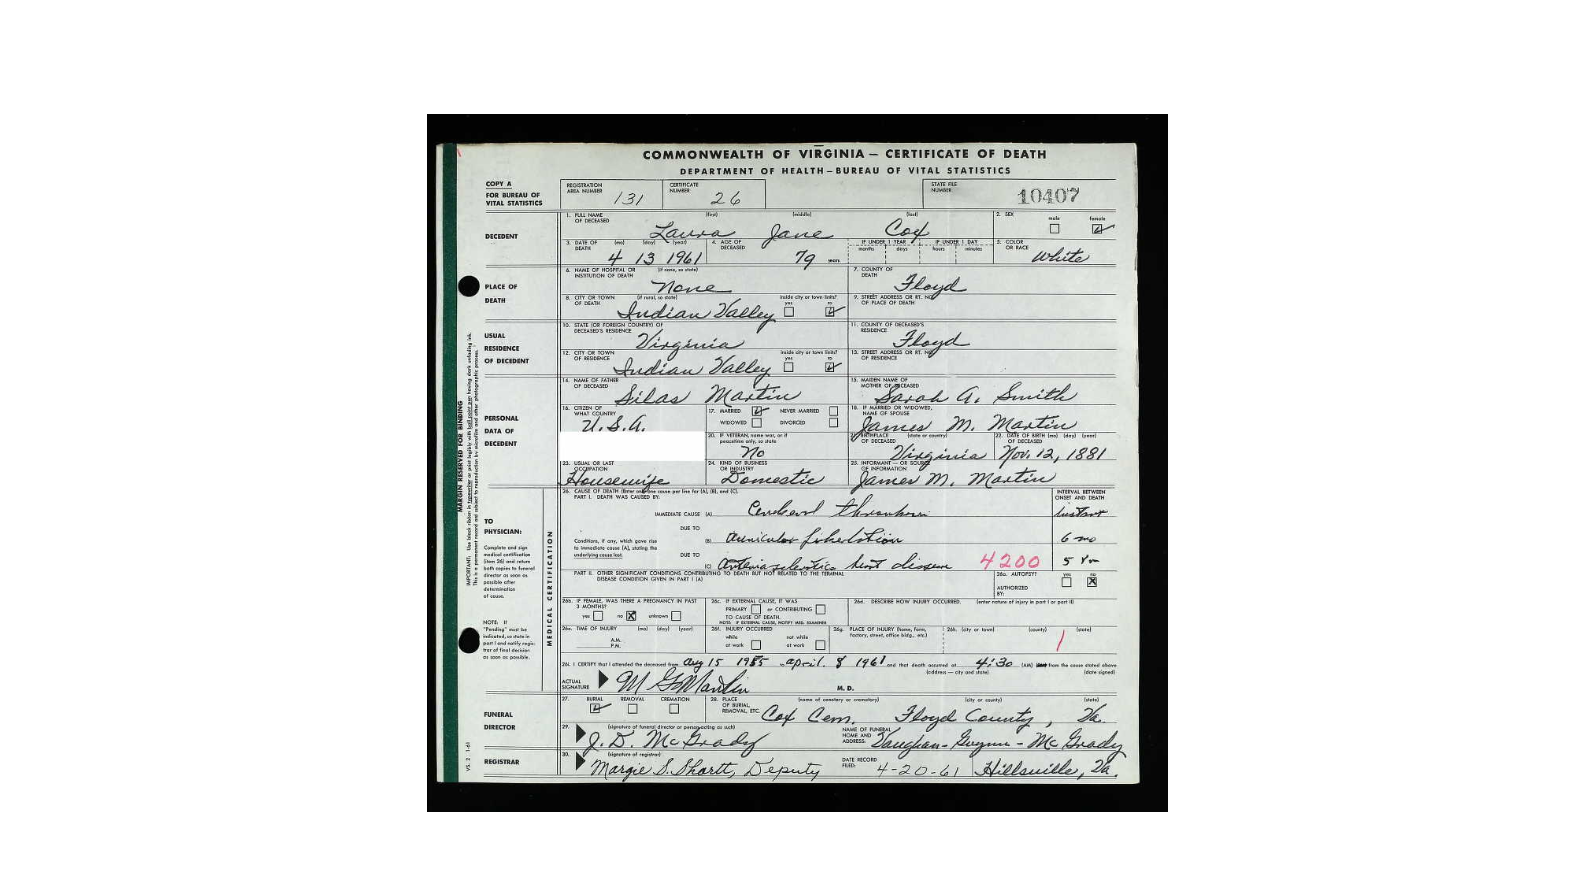 COMMONWEALTH OF VIRGINIA — CERTIFICATE OF DEATH
DEPARTMENT OF HEALTH—BUREAU OF VITAL STATISTICS
COPY A
FOR BUREAU OF
VITAL STATISTICS
REGISTRATION AREA NUMBER 131
CERTIFICATE NUMBER 26
STATE FILE NUMBER 10407
DECEDENT
1. FULL NAME OF DECEASED (first) (middle) (last) Laura Jane Cox
2. SEX male female
3. DATE OF DEATH (mo) (day) (year) 4 13 1961
4. AGE OF DECEASED 79 years
IF UNDER 1 YEAR months days IF UNDER 1 DAY hours minutes
5. COLOR OR RACE White
PLACE OF DEATH
6. NAME OF HOSPITAL OR INSTITUTION OF DEATH (if none, so state) None
7. COUNTY OF DEATH Floyd
8. CITY OR TOWN OF DEATH (if rural, so state) Indian Valley inside city or town limits? yes no
9. STREET ADDRESS OR RT. NO. OF PLACE OF DEATH
USUAL RESIDENCE OF DECEDENT
10. STATE (OR FOREIGN COUNTRY) OF DECEASED'S RESIDENCE Virginia
11. COUNTY OF DECEASED'S RESIDENCE Floyd
12. CITY OR TOWN OF RESIDENCE Indian Valley inside city or town limits? yes no
13. STREET ADDRESS OR RT. NO. OF RESIDENCE
PERSONAL DATA OF DECEDENT
14. NAME OF FATHER OF DECEASED Silas Martin
15. MAIDEN NAME OF MOTHER OF DECEASED Sarah A. Smith
16. CITIZEN OF WHAT COUNTRY U.S.A.
17. MARRIED NEVER MARRIED WIDOWED DIVORCED
18. IF MARRIED OR WIDOWED, NAME OF SPOUSE James M. Martin
20. IF VETERAN, name war, or if peacetime only, so state No
21. BIRTHPLACE (state or country) Virginia
22. DATE OF BIRTH (mo) (day) (year) Nov. 12, 1881
23. USUAL OR LAST OCCUPATION Housewife
24. KIND OF BUSINESS OR INDUSTRY Domestic
25. INFORMANT — OR SOURCE OF INFORMATION James M. Martin
MARGIN RESERVED FOR BINDING
TO PHYSICIAN:
Complete and sign
medical certification
(item 26) and return
both copies to funeral
director as soon as
possible after
determination
of cause.
NOTE: If
"Pending" must be
indicated, so state in
part I and notify regis-
trar of final decision
as soon as possible.
MEDICAL CERTIFICATION
26. CAUSE OF DEATH (Enter only one cause per line for (A), (B), and (C).
PART I. DEATH WAS CAUSED BY:
INTERVAL BETWEEN ONSET AND DEATH
IMMEDIATE CAUSE (A) Cerebral thrombosis instant
DUE TO
Conditions, if any, which gave rise to immediate cause (A), stating the underlying cause last.
(B) auricular fibrillation 6 mo
DUE TO
(C) arteriosclerotic heart disease 4200 5 yrs
PART II. OTHER SIGNIFICANT CONDITIONS CONTRIBUTING TO DEATH BUT NOT RELATED TO THE TERMINAL
DISEASE CONDITION GIVEN IN PART I (A)
26a. AUTOPSY? yes no
AUTHORIZED BY:
26b. IF FEMALE, WAS THERE A PREGNANCY IN PAST 3 MONTHS? yes no unknown
26c. IF EXTERNAL CAUSE, IT WAS PRIMARY or CONTRIBUTING TO CAUSE OF DEATH.
NOTE: IF EXTERNAL CAUSE, NOTIFY MED. EXAMINER
26d. DESCRIBE HOW INJURY OCCURRED. (enter nature of injury in part I or part II)
26e. TIME OF INJURY (mo) (day) (year) A.M. P.M.
26f. INJURY OCCURRED while at work not while at work
26g. PLACE OF INJURY (home, farm, factory, street, office bldg., etc.)
26h. (city or town) (county) (state)
26i. I CERTIFY that I attended the deceased from Aug 15 1955 April 8 1961 and that death occurred at 4:30 (AM) from the cause stated above
(address — city and state) (date signed)
ACTUAL SIGNATURE M G Martin M. D.
FUNERAL DIRECTOR
27. BURIAL REMOVAL CREMATION
28. PLACE OF BURIAL, REMOVAL, ETC. (name of cemetery or crematory) (city or county) (state)
Cox Cem. Floyd County, Va.
29. (signature of funeral director or person acting as such) J. D. McGrady
NAME OF FUNERAL HOME AND ADDRESS: Vaughan-Guynn-McGrady
REGISTRAR
30. (signature of registrar) Margie S. Shortt, Deputy
DATE RECORD FILED: 4-20-61 Hillsville, Va.
VS. 2 1-61